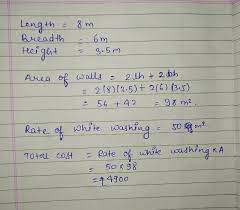 Length = 8m
Breadth = 6m
Height = 3.5m
Area of walls = 2lh + 2bh
= 2(8)(3.5) + 2(6)(3.5)
= 56 + 42 = 98 m².
Rate of white washing = 50 m²
Total cost = Rate of white washing x A
= 50 x 98
= ₹4900